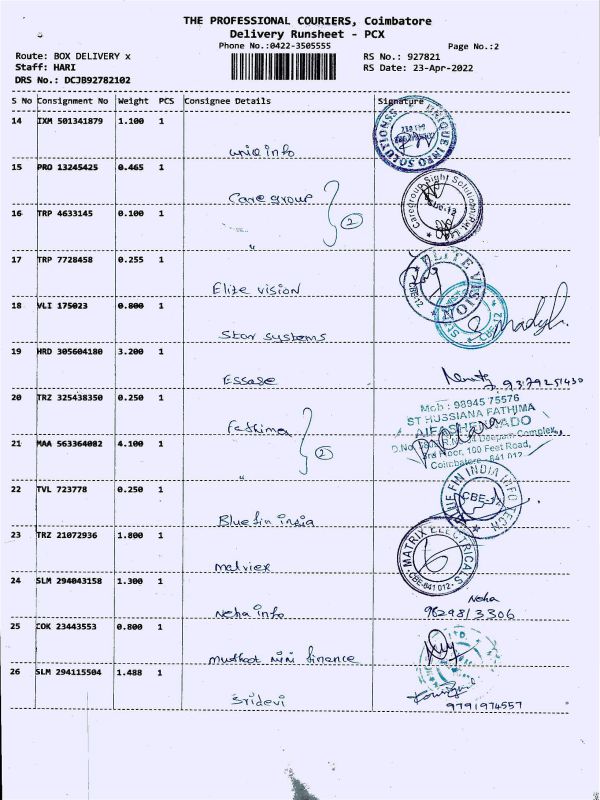 THE PROFESSIONAL COURIERS, Coimbatore
Delivery Runsheet - PCX
Phone No.:0422-3505555 Page No.:2
Route: BOX DELIVERY x RS No.: 927821
Staff: HARI RS Date: 23-Apr-2022
DRS No.: DCJB92782102
S No Consignment No Weight PCS Consignee Details Signature
14 IXM 501341879 1.100 1
uniq info
UNIQUE INFO SOLUTIONS
15 PRO 13245425 0.465 1
Care group
Caregroup Sight Solution Pvt. Ltd
16 TRP 4633145 0.100 1
" 2
17 TRP 7728458 0.255 1
Elite vision
ELITE VISION
CBE-12
18 VLI 175023 0.800 1
Star systems
CBE-12
19 HRD 305604180 3.200 1
Essae
9379251430
20 TRZ 325438350 0.250 1
Fathima
Mob : 98945 75576
ST HUSSIANA FATHIMA
21 MAA 563364082 4.100 1
" 2
Deepam Complex,
3rd Floor, 100 Feet Road,
Coimbatore - 641 012
22 TVL 723778 0.250 1
Bluefin india
FIN INDIA INFO TECH
CBE-12
23 TRZ 21072936 1.800 1
matrix
MATRIX ELECTRICALS
CBE-641 012
24 SLM 294043158 1.300 1
Neha info
Neha
9629813306
25 COK 23443553 0.800 1
muthoot mini finance
26 SLM 294115504 1.488 1
Sridevi
9791974557